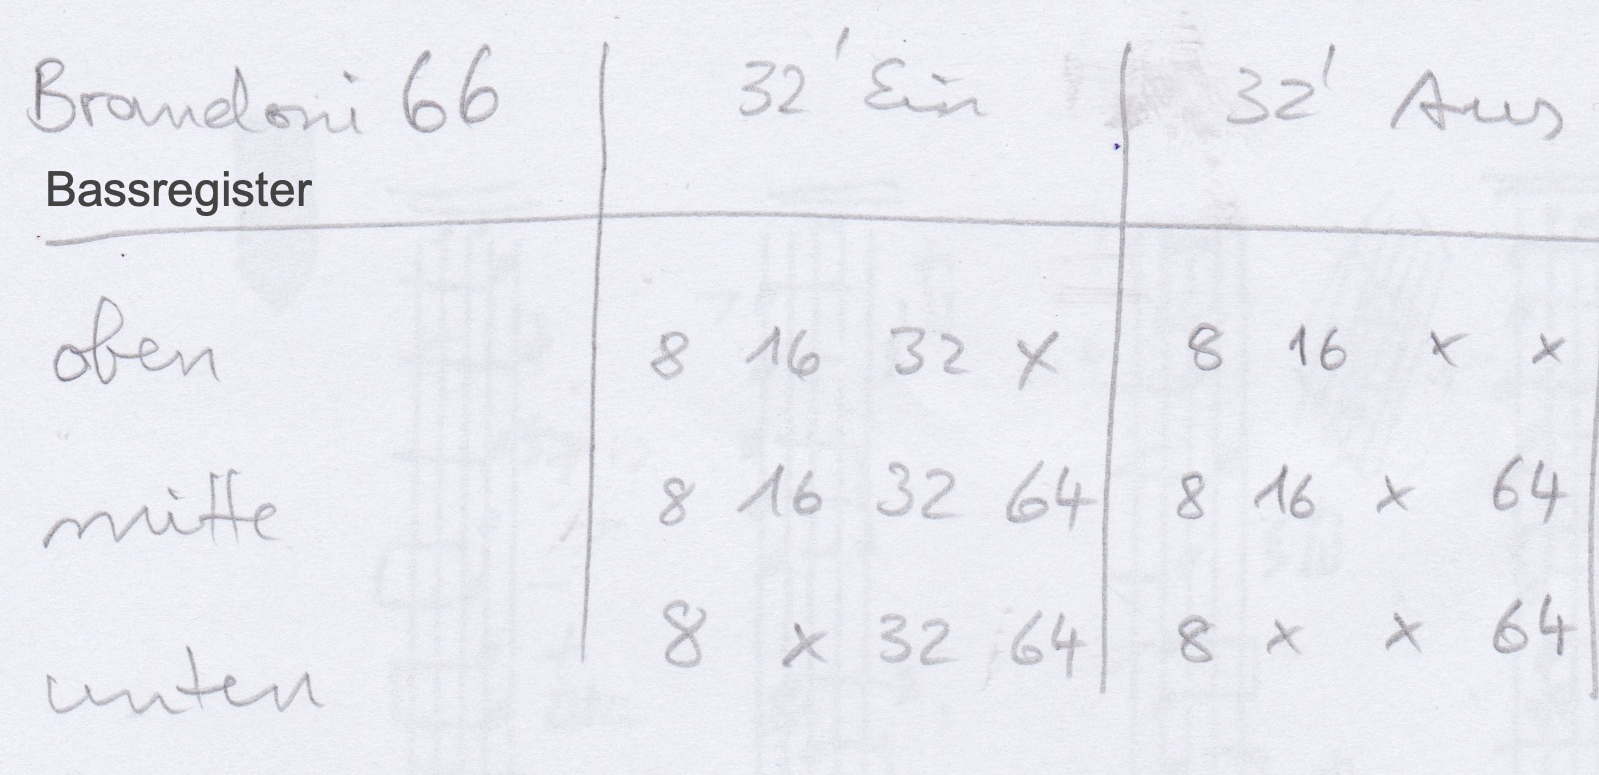 Brandoni 66 32' Ein 32' Aus
Bassregister
oben 8 16 32 x 8 16 x x
mitte 8 16 32 64 8 16 x 64
unten 8 x 32 64 8 x x 64